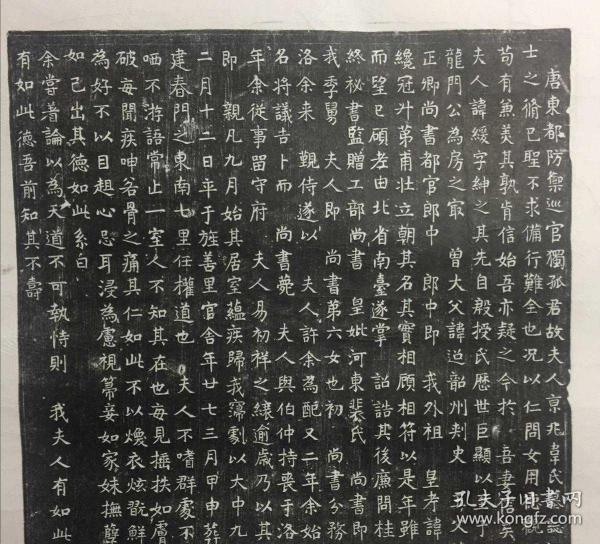 唐東都防禦巡官獨孤君故夫人京兆韋氏墓誌
士之脩已聖不求備行難全也況以仁問女用德
苟有兼美其孰肯信始吾亦疑之今於 吾妻信矣
夫人諱緩字紳之其先自殷授氏歷世巨顯以至于
龍門公為房之冣 曽大父諱迢韶州刾史 大父
正卿尚書都官郎中 郎中即 我外祖 皇考諱
纔冠廾第甫壯立朝其名其實相顧相符以是年雖
而望已碩老由北省南臺遂掌 詔誥其後廉問桂
終秘書監贈工部尚書 皇妣河東裴氏 尚書即
我季舅 夫人即 尚書第六女也初 尚書分務
洛余来 覲侍遂以 夫人許余為配又二年余始
名将議吉卜而 尚書薨 夫人與伯仲持喪于洛
年余従事留守府 夫人易初祥之縗逾歳乃以其
即 親凡九月始其居室藴疾歸我寖劇以大中九
二月十二日卒于旌善里官舎年廿七三月甲申葬
建春門之東南七里任權道也 夫人不嗜群處不
哂不游語常止一室人不知其在也每見揺扶如膚
破每聞疾呻若骨之痛其仁如此不以燠衣炫翫鮮
為好不以目趐心忌耳浸為慮視幕妾如家妹撫孽
如己出其德如此系曰
余嘗著論以為天道不可執恃則 我夫人有如此
有如此德吾前知其不壽
孔夫子旧书网
www.kongfz.com